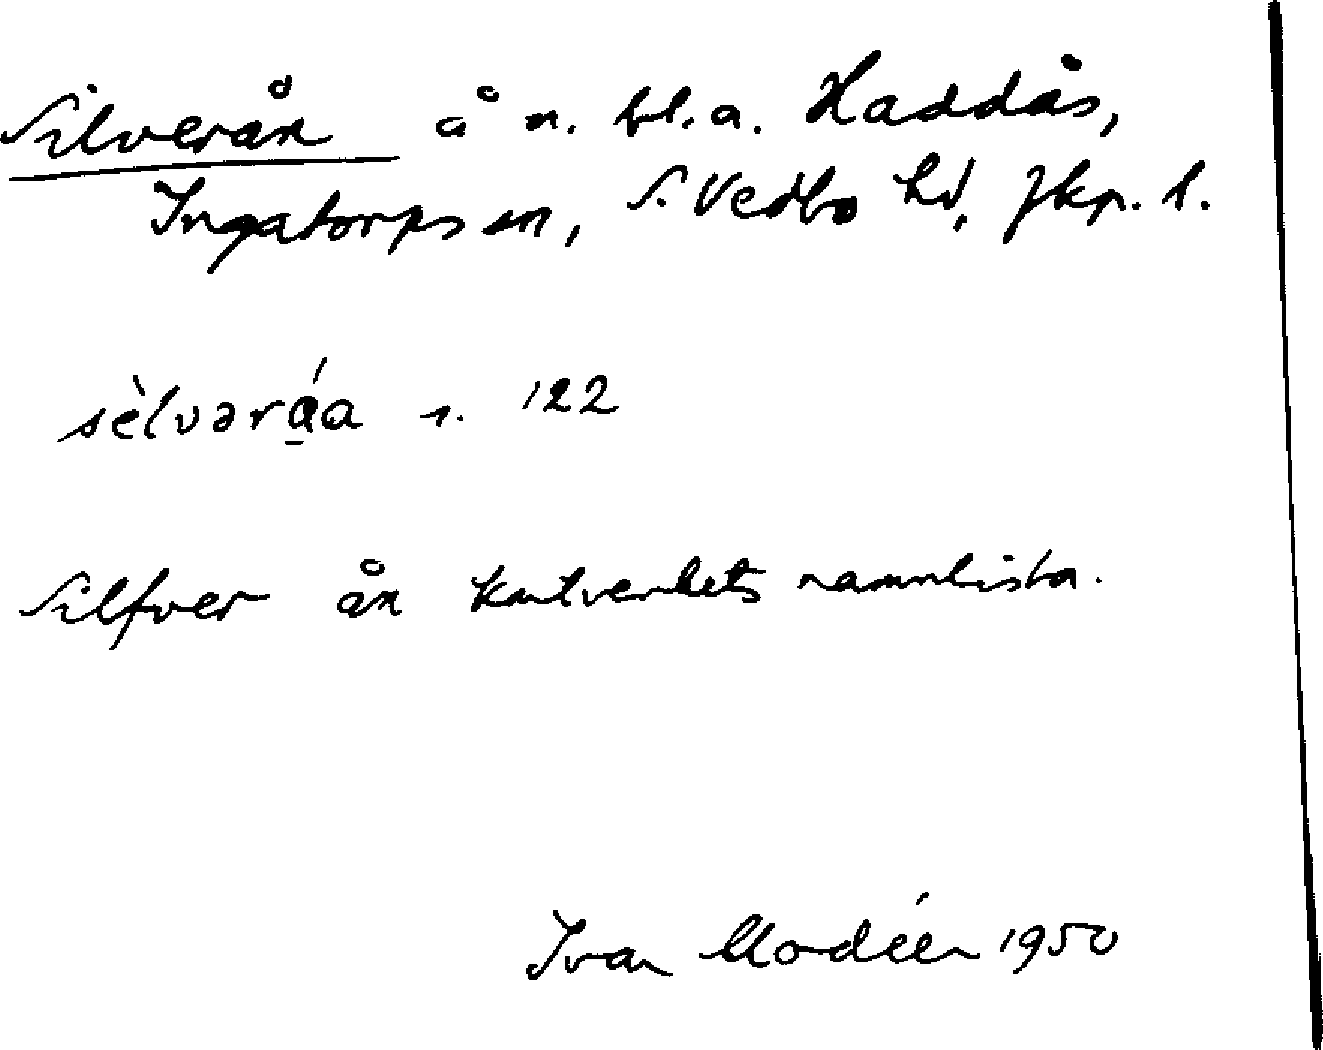 Silverån å n. bl.a. Haddås,
Ingatorps sn, S. Vedbo hd, Jkp. l.
sèlvərá̱a s. 122
Silfver ån Kartverkets namnlista.
Ivar Modéer 1950